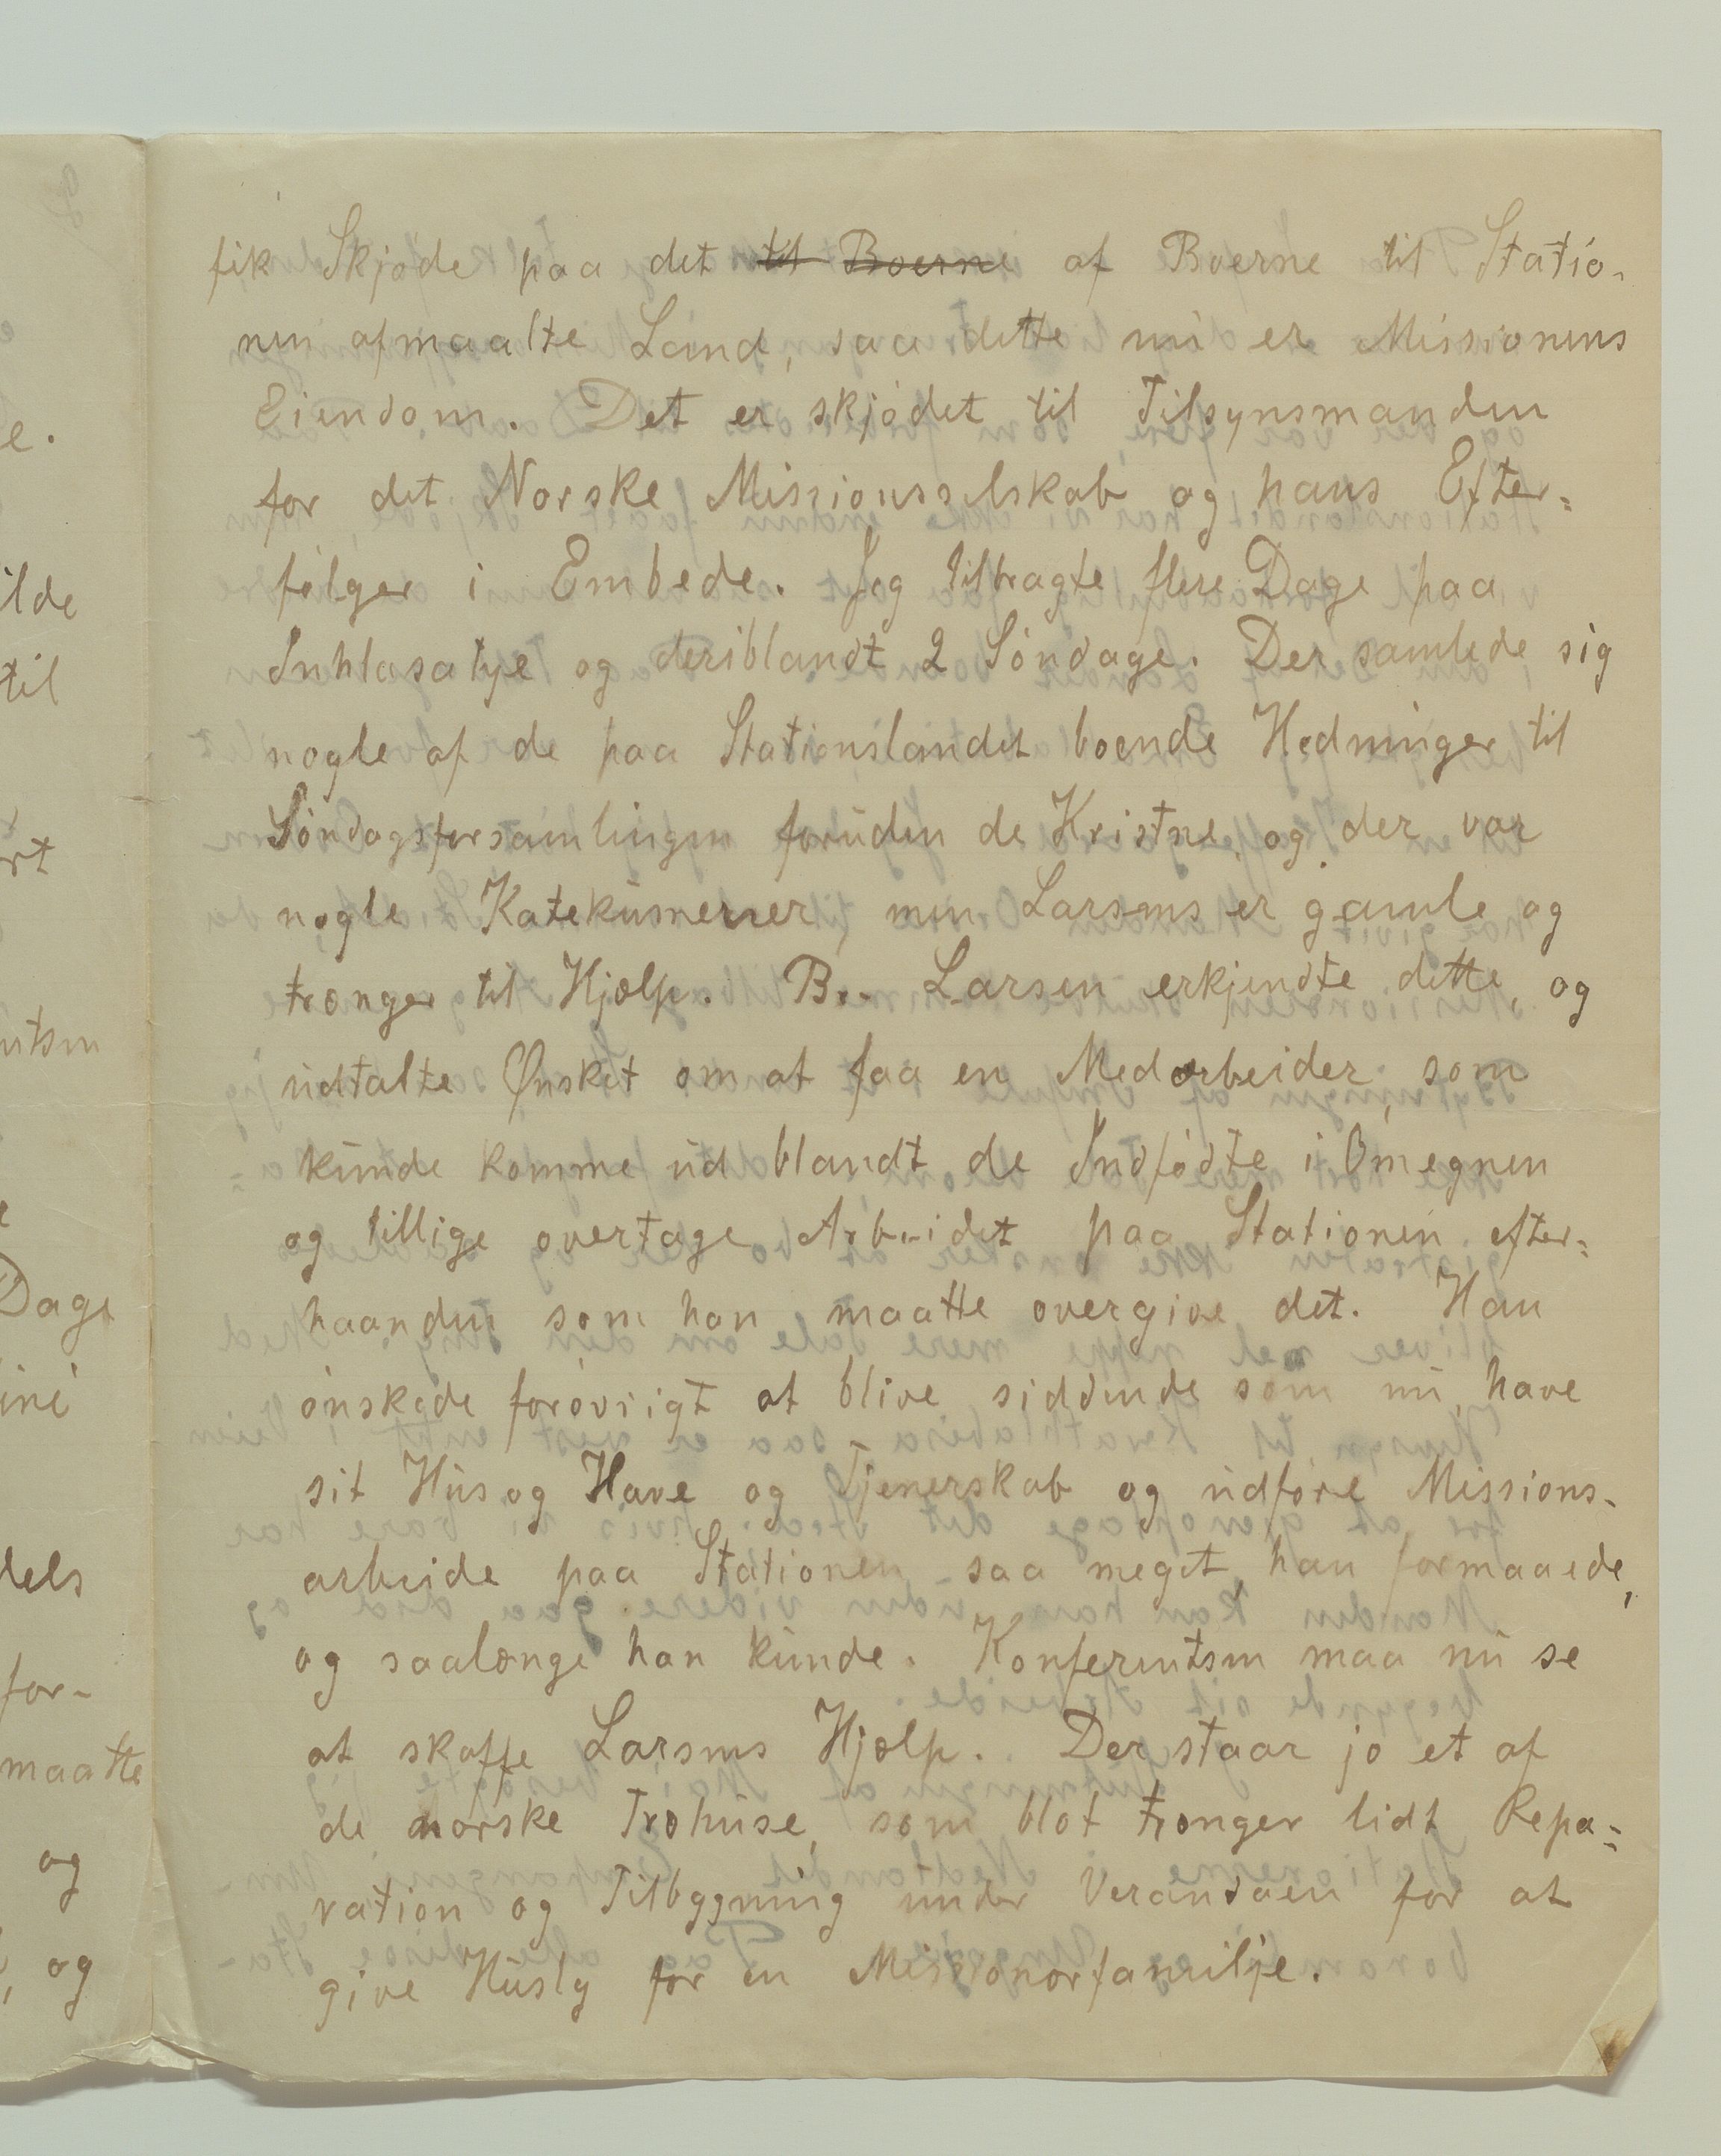 fik Skjøde paa det til Boerne af Boerne til Statio-
nen afmaalte Land, saa dette nu er Missionens
Eiendom. Det er skjødet til Tilsynsmanden
for det Norske Missionsselskab og hans Efter=
følger i Embede. Jeg tilbragte flere Dage paa
Inhlasatye og deriblandt 2 Søndage. Der samlede sig
nogle af de paa Stationslandet boende Hedninger til
Søndagsforsamlingen foruden de Kristne, og der var
nogle Katekumener, men Larsens er gamle og
trænger til Hjælp. Br. Larsen erkjendte dette, og
udtalte Ønsket om at faa en Medarbeider, som
kunde komme ud blandt de Indfødte i Omegnen
og tillige overtage Arbeidet paa Stationen efter=
haanden som han maatte overgive det. Han
ønskede forøvrigt at blive siddende som nu, have
sit Hus og Have og Tjenerskab og udføre Missions-
arbeide paa Stationen saa meget han formaaede,
og saalænge han kunde. Konferentsen maa nu se
at skaffe Larsens Hjælp. Der staar jo et af
de norske Træhuse, som blot trænger lidt Repa=
ration og Tilbygning under Verandaen for at
give Husly for en Missionærfamilje.
e.
ilde
til
rt
entsen
Dage
ine
dels
for-
maatte
og
, og